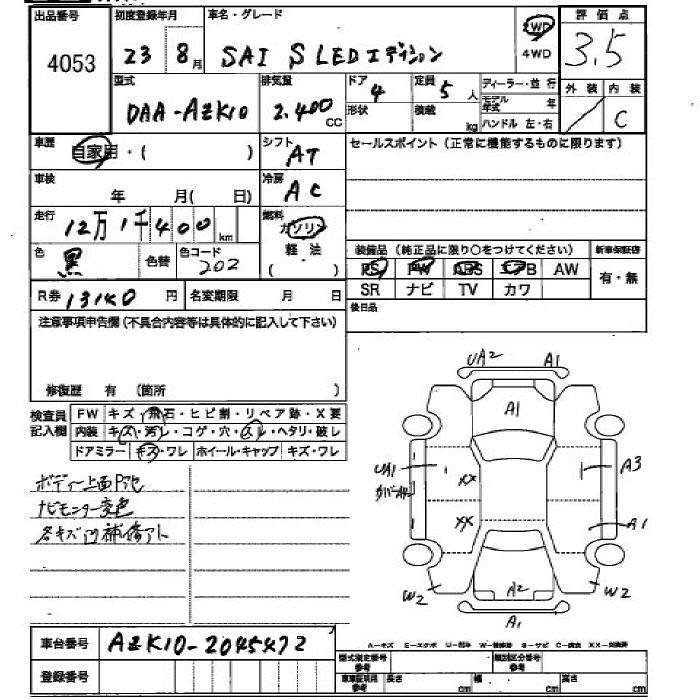 出品番号 初度登録年月 車名・グレード 2WD 評価点
4053 23 8月 SAI S LED エディション 4WD 3.5
型式 排気量 ドア 定員 ディーラー・並行 外装 内装
DAA-AZK10 2.400 CC 4 5人 モデル年式 年 C
形状 積載 kg ハンドル 左・右
車歴 自家用・( ) シフト AT セールスポイント(正常に機能するものに限ります)
車検 年 月( 日) 冷房 AC
走行 12万1千400km 燃料 ガソリン
軽・油
( )
色 黒 色替 色コード 202
装備品(純正品に限り○をつけてください) 新車保証書
PS PW ABS エアB AW 有・無
SR ナビ TV カワ
R券 13140円 名変期限 月 日 後日品
注意事項申告欄(不具合内容等は具体的に記入して下さい)
修復歴 有 (箇所 )
検査員記入欄 FW キズ・飛石・ヒビ割・リペア跡・X要
内装 キズ・汚レ・コゲ・穴・スレ・ヘタリ・破レ
ドアミラー キズ・ワレ ホイール・キャップ キズ・ワレ
ボディー上面
ナビモニター変色
各キズ凹補修アト
UA2 A1
A1
UA1
XX A3
XX A1
W2 A2 W2
A1
車台番号 AZK10-2045472
登録番号
A-キズ E-エクボ U-凹 W-補修跡 S-サビ C-腐食 XX-交換済
型式指定番号 類別区分番号
車庫証明参考 長さ cm 幅 cm 高さ cm